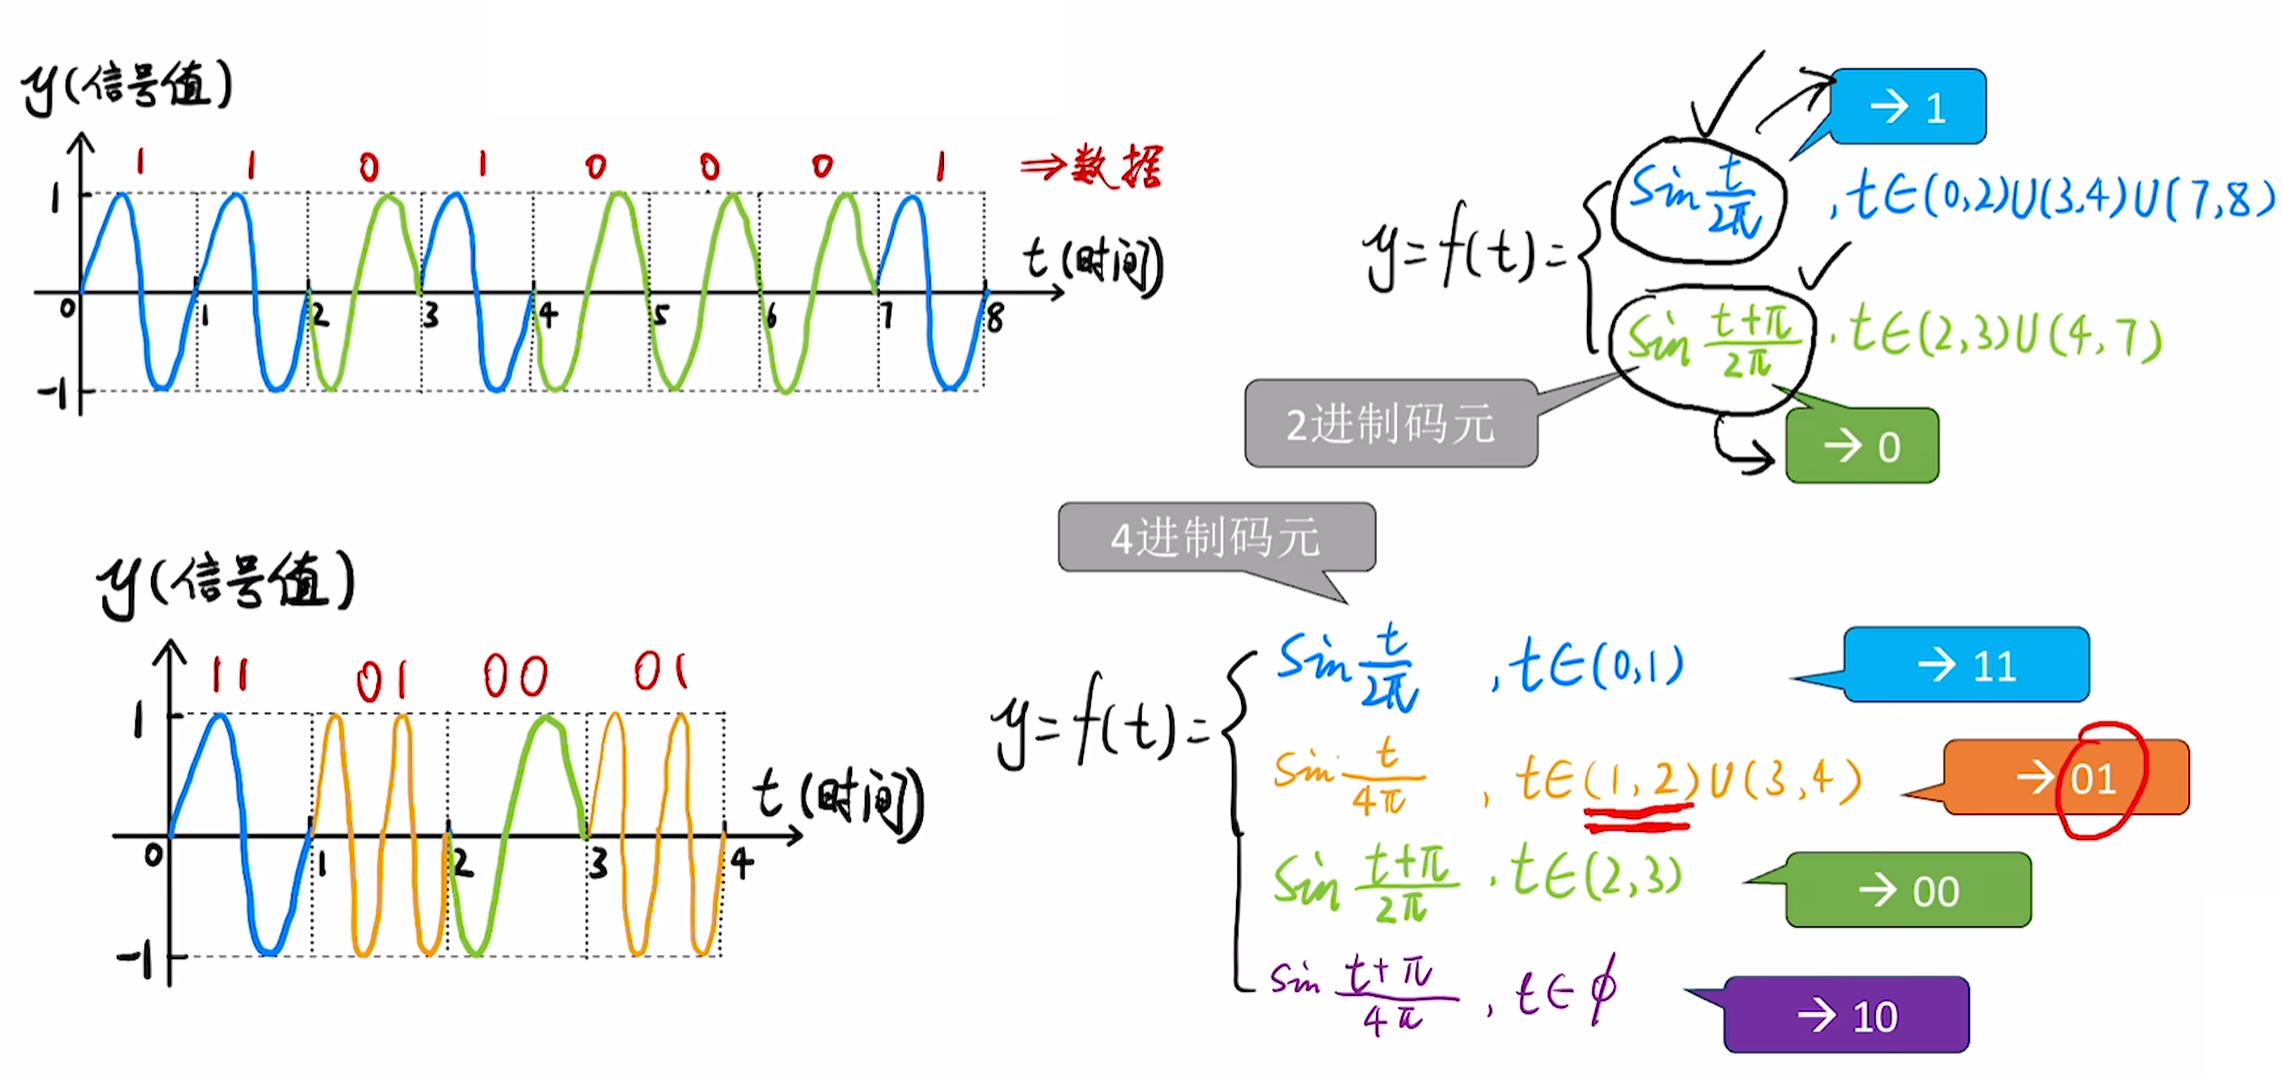 y(信号值)
1 1 0 1 0 0 0 1 ⇒数据
1
t(时间)
0 1 2 3 4 5 6 7 8
-1
→ 1
y=f(t)={
sin t/2π , t∈(0,2)∪(3,4)∪(7,8)
sin (t+π)/2π , t∈(2,3)∪(4,7)
2进制码元
→ 0
4进制码元
y(信号值)
11 01 00 01
1
t(时间)
0 1 2 3 4
-1
y=f(t)={
sin t/2π , t∈(0,1) → 11
sin t/4π , t∈(1,2)∪(3,4) → 01
sin (t+π)/2π , t∈(2,3) → 00
sin (t+π)/4π , t∈φ → 10